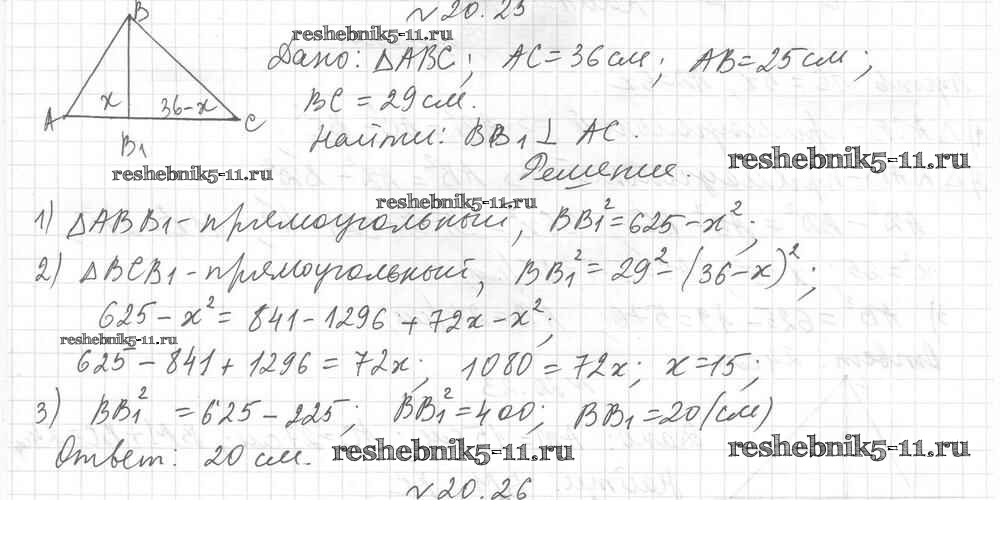 № 20.25
reshebnik5-11.ru
B
Дано: △ABC; AC = 36 см; AB = 25 см;
x 36-x
BC = 29 см.
A C
B₁
Найти: BB₁ ⊥ AC.
reshebnik5-11.ru
Решение.
reshebnik5-11.ru
reshebnik5-11.ru
1) △ABB₁ - прямоугольный, BB₁² = 625 - x²;
2) △BCB₁ - прямоугольный, BB₁² = 29² - (36-x)²;
625 - x² = 841 - 1296 + 72x - x²;
reshebnik5-11.ru
625 - 841 + 1296 = 72x; 1080 = 72x; x = 15;
3) BB₁² = 625 - 225; BB₁² = 400; BB₁ = 20 (см)
Ответ: 20 см.
reshebnik5-11.ru
reshebnik5-11.ru
№ 20.26